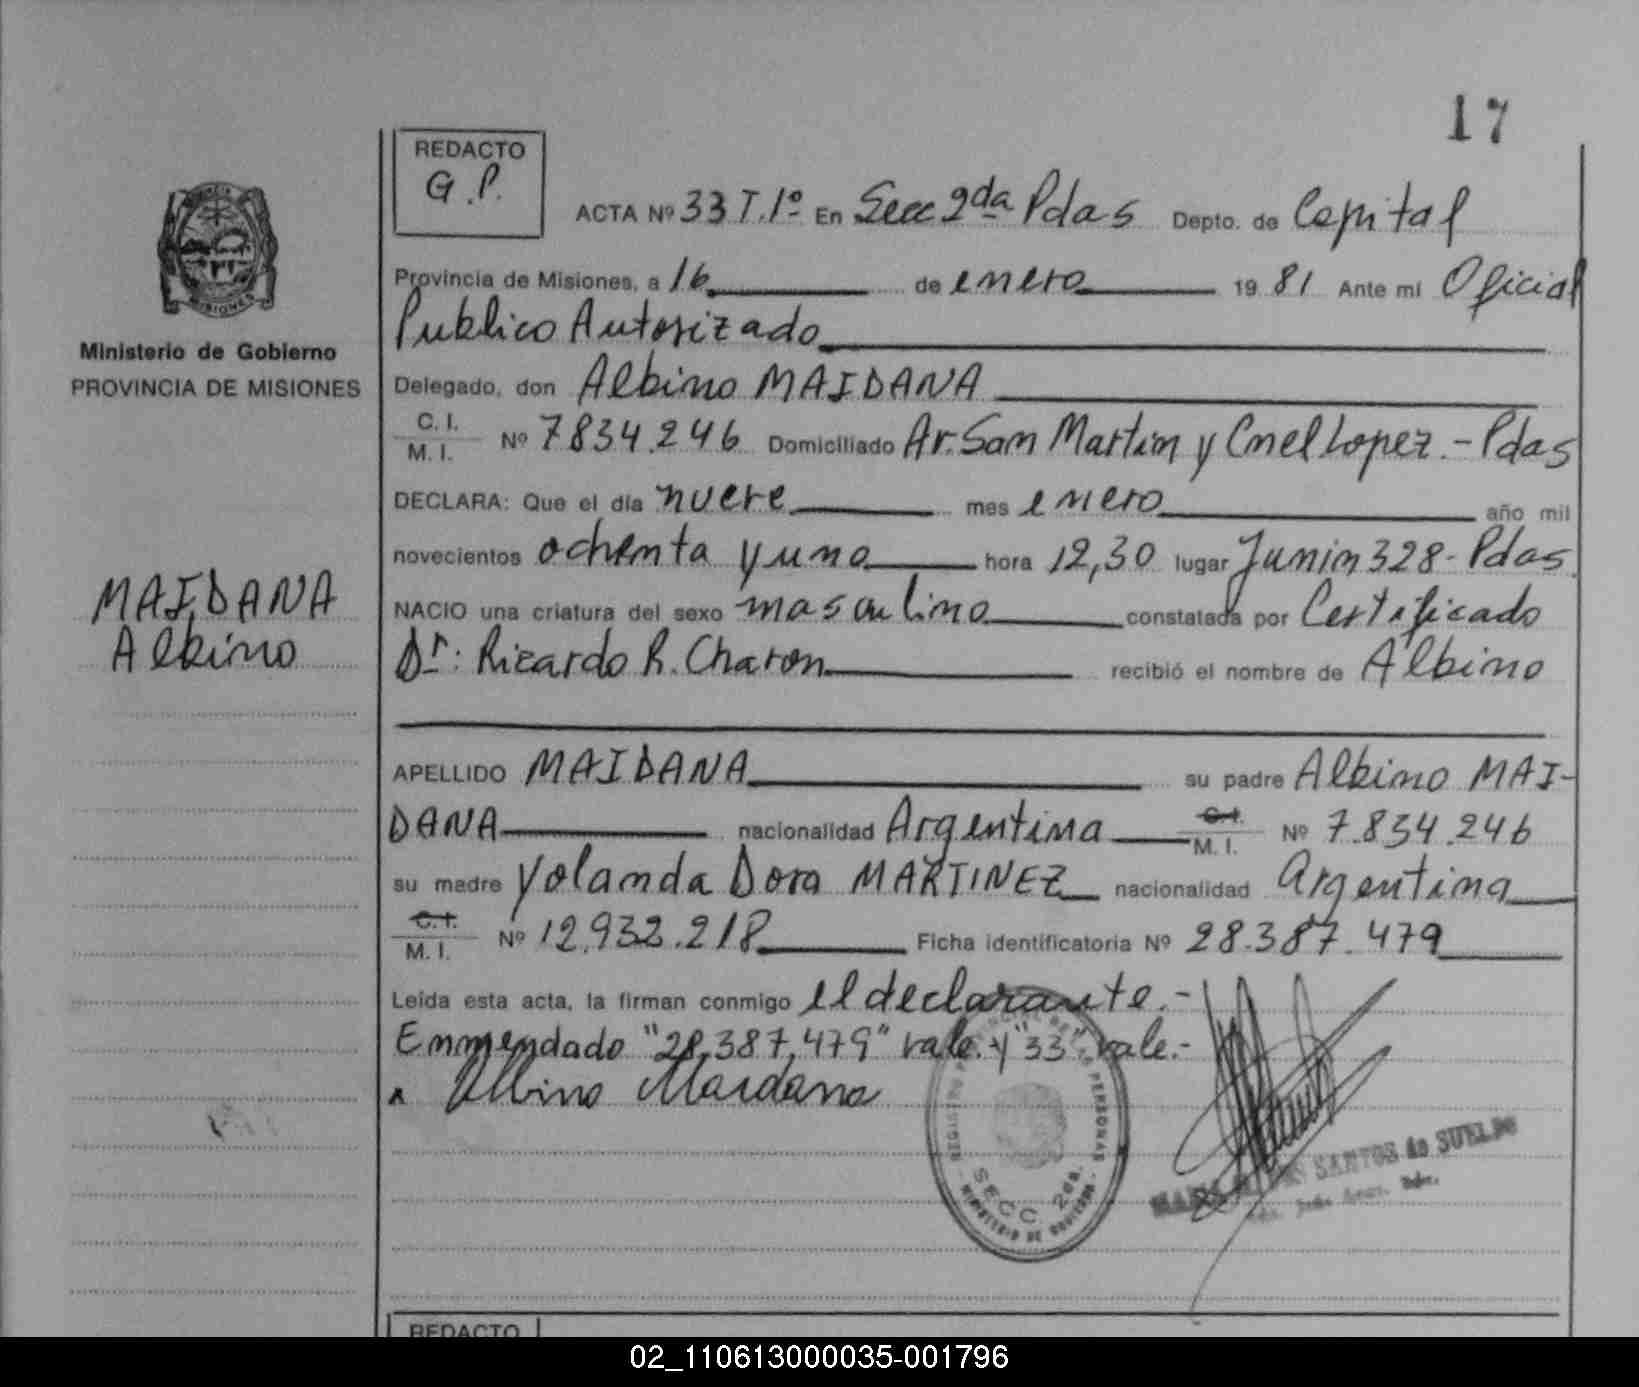 17
REDACTO
G.P.
ACTA Nº 33 T.1º En Secc 2da Pdas Depto. de Capital
Provincia de Misiones, a 16 de enero 1981 Ante mi Oficial
Publico Autorizado
Ministerio de Gobierno
PROVINCIA DE MISIONES
Delegado, don Albino MAIDANA
C. I.
M. I. Nº 7834.246 Domiciliado Av. San Martin y Cnel Lopez.- Pdas
DECLARA: Que el día nueve mes enero año mil
novecientos ochenta y uno hora 12,30 lugar Junin 328- Pdas
MAIDANA
Albino
NACIO una criatura del sexo masculino constatada por Certificado
Dr: Ricardo R. Charon recibió el nombre de Albino
APELLIDO MAIDANA su padre Albino MAI-
DANA nacionalidad Argentina C.I. M. I. Nº 7.834.246
su madre Yolanda Dora MARTINEZ nacionalidad Argentina
C.I.
M. I. Nº 12.933.218 Ficha identificatoria Nº 28.387.479
Leída esta acta, la firman conmigo el declarante.-
Enmendado "28,387,479" vale. y "33" vale.-
Albino Maidana
SECC. 2da.
SANTOS de SUELDO
REDACTO
02_110613000035-001796